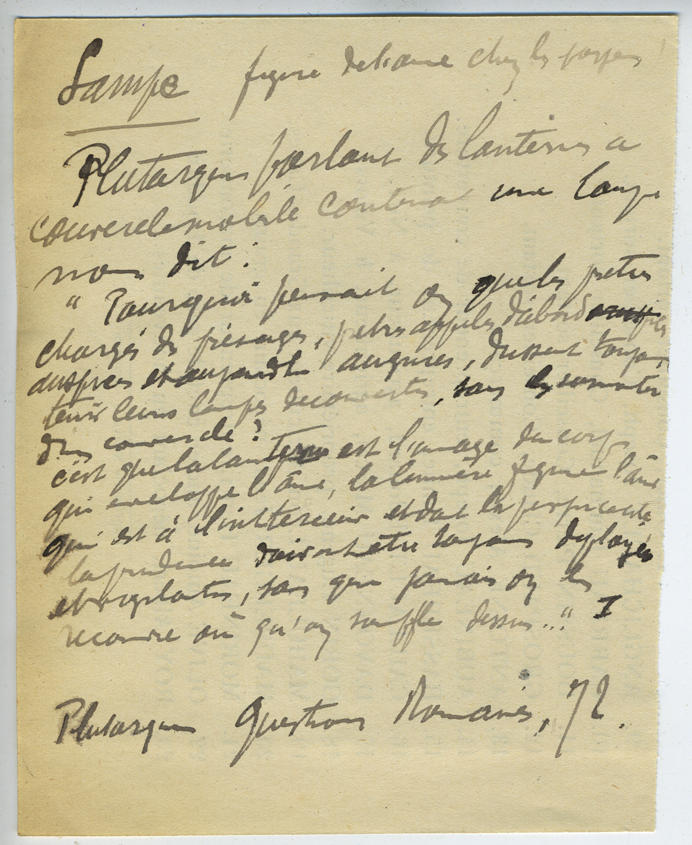 Lampe figure de l'ame chez les payens
Plutarque parlant des lanternes a
couvercle mobile contenant une lampe
nous dit :
" Pourquoi pensait on que les pretres
chargés des présages, pretres appelés d'abord
auspices et aujourd'hui augures, dussent toujours
tenir leurs lampes decouvertes, sans les surmonter
d'un couvercle ?
c'est que la lanterne est l'image du corps
qui enveloppe l'âme, la lumière figure l'âme
qui est à l'interieur et dont la perspicacité
la prudence doivent etre toujours deployées
et vigilantes, sans que jamais on les
recouvre où qu'on souffle dessus..." I
Plutarque Questions Romaines, 72.